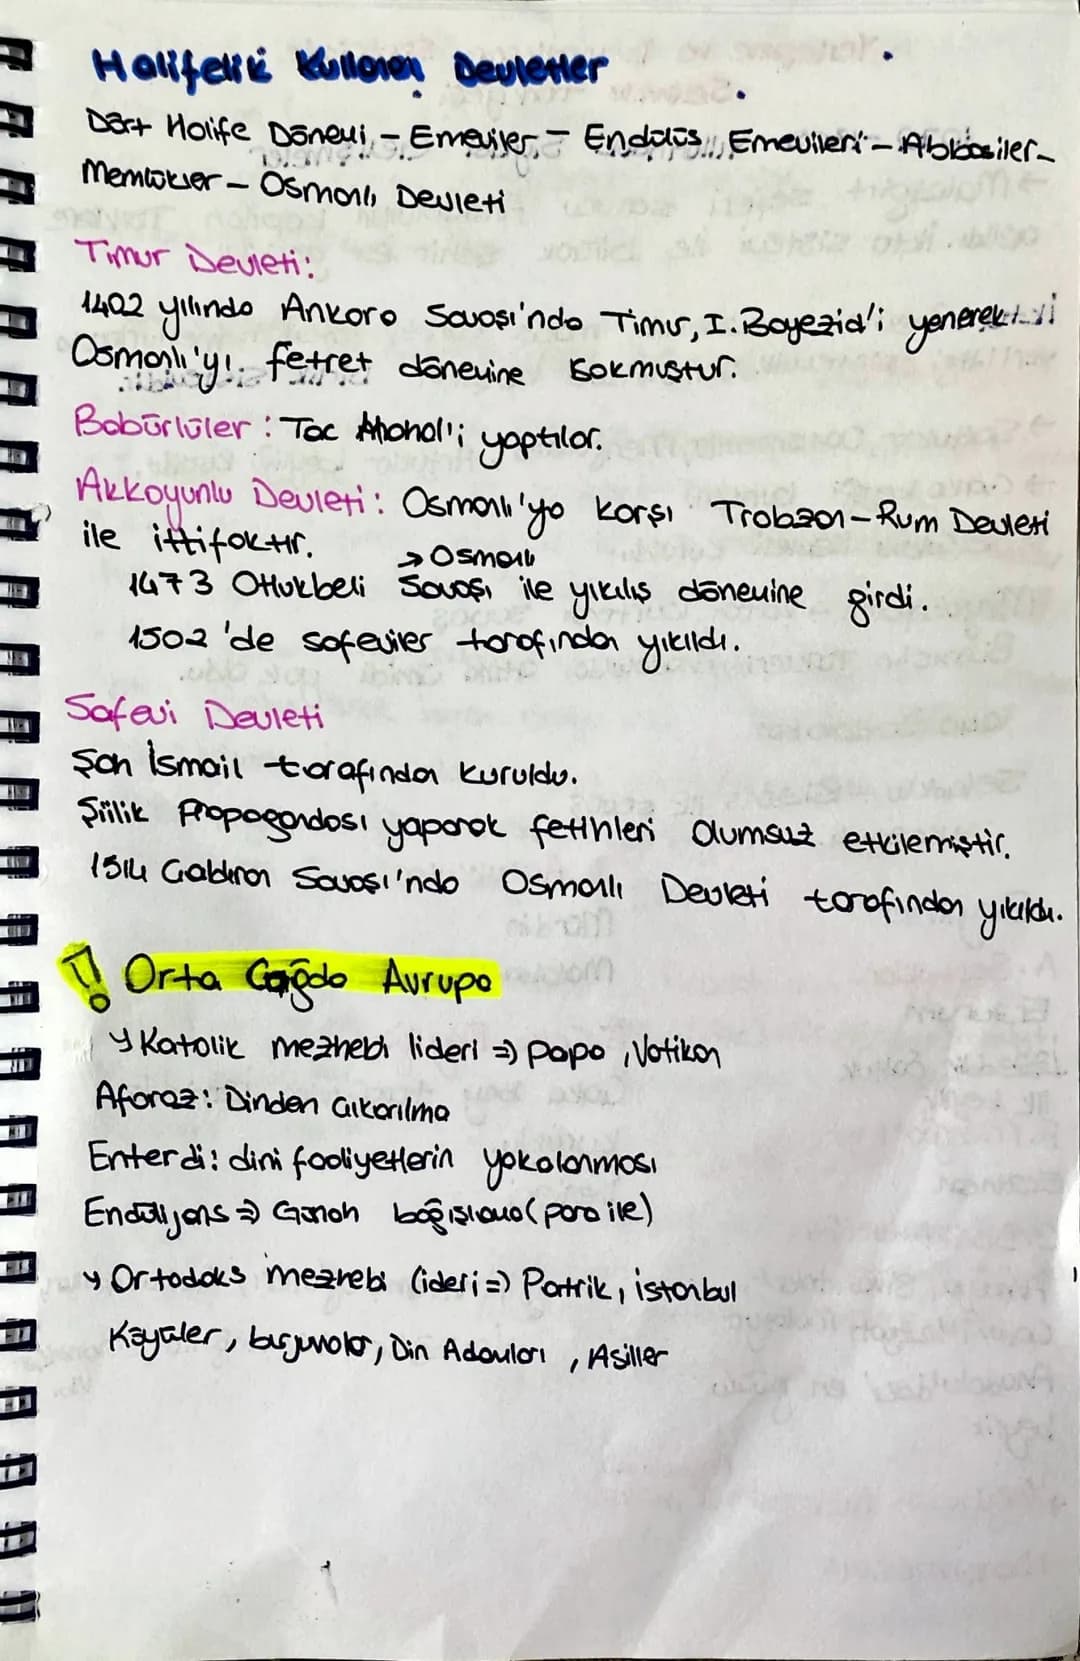 Halifelik Kullanan Devletler
Dört Halife Dönemi - Emeviler - Endülüs Emevileri - Abbasiler -
Memlükler - Osmanlı Devleti
Timur Devleti:
1402 yılında Ankara Savaşı'nda Timur, I. Bayezid'i yenerek
Osmanlı'yı fetret dönemine sokmuştur.
Babürlüler : Tac Mahal'i yaptılar.
Akkoyunlu Devleti : Osmanlı'ya karşı Trabzon-Rum Devleti
ile ittifaktır.
→ Osmanlı
1473 Otlukbeli Savaşı ile yıkılış dönemine girdi.
1502'de safeviler tarafından yıkıldı.
Safevi Devleti
Şah İsmail tarafından kuruldu.
Şiilik Propagandası yaparak fetihleri olumsuz etkilemiştir.
1514 Çaldıran Savaşı'nda Osmanlı Devleti tarafından yıkıldı.
! Orta Çağda Avrupa
y Katolik mezhebi lideri => papa, Vatikan
Aforoz: Dinden çıkarılma
Enterdi: dini faaliyetlerin yakalanması
Endülijans => Günah bağışlama (para ile)
y Ortodoks mezhebi lideri => Patrik, istanbul
Köylüler, burjuvalar, Din Adamları, Asiller